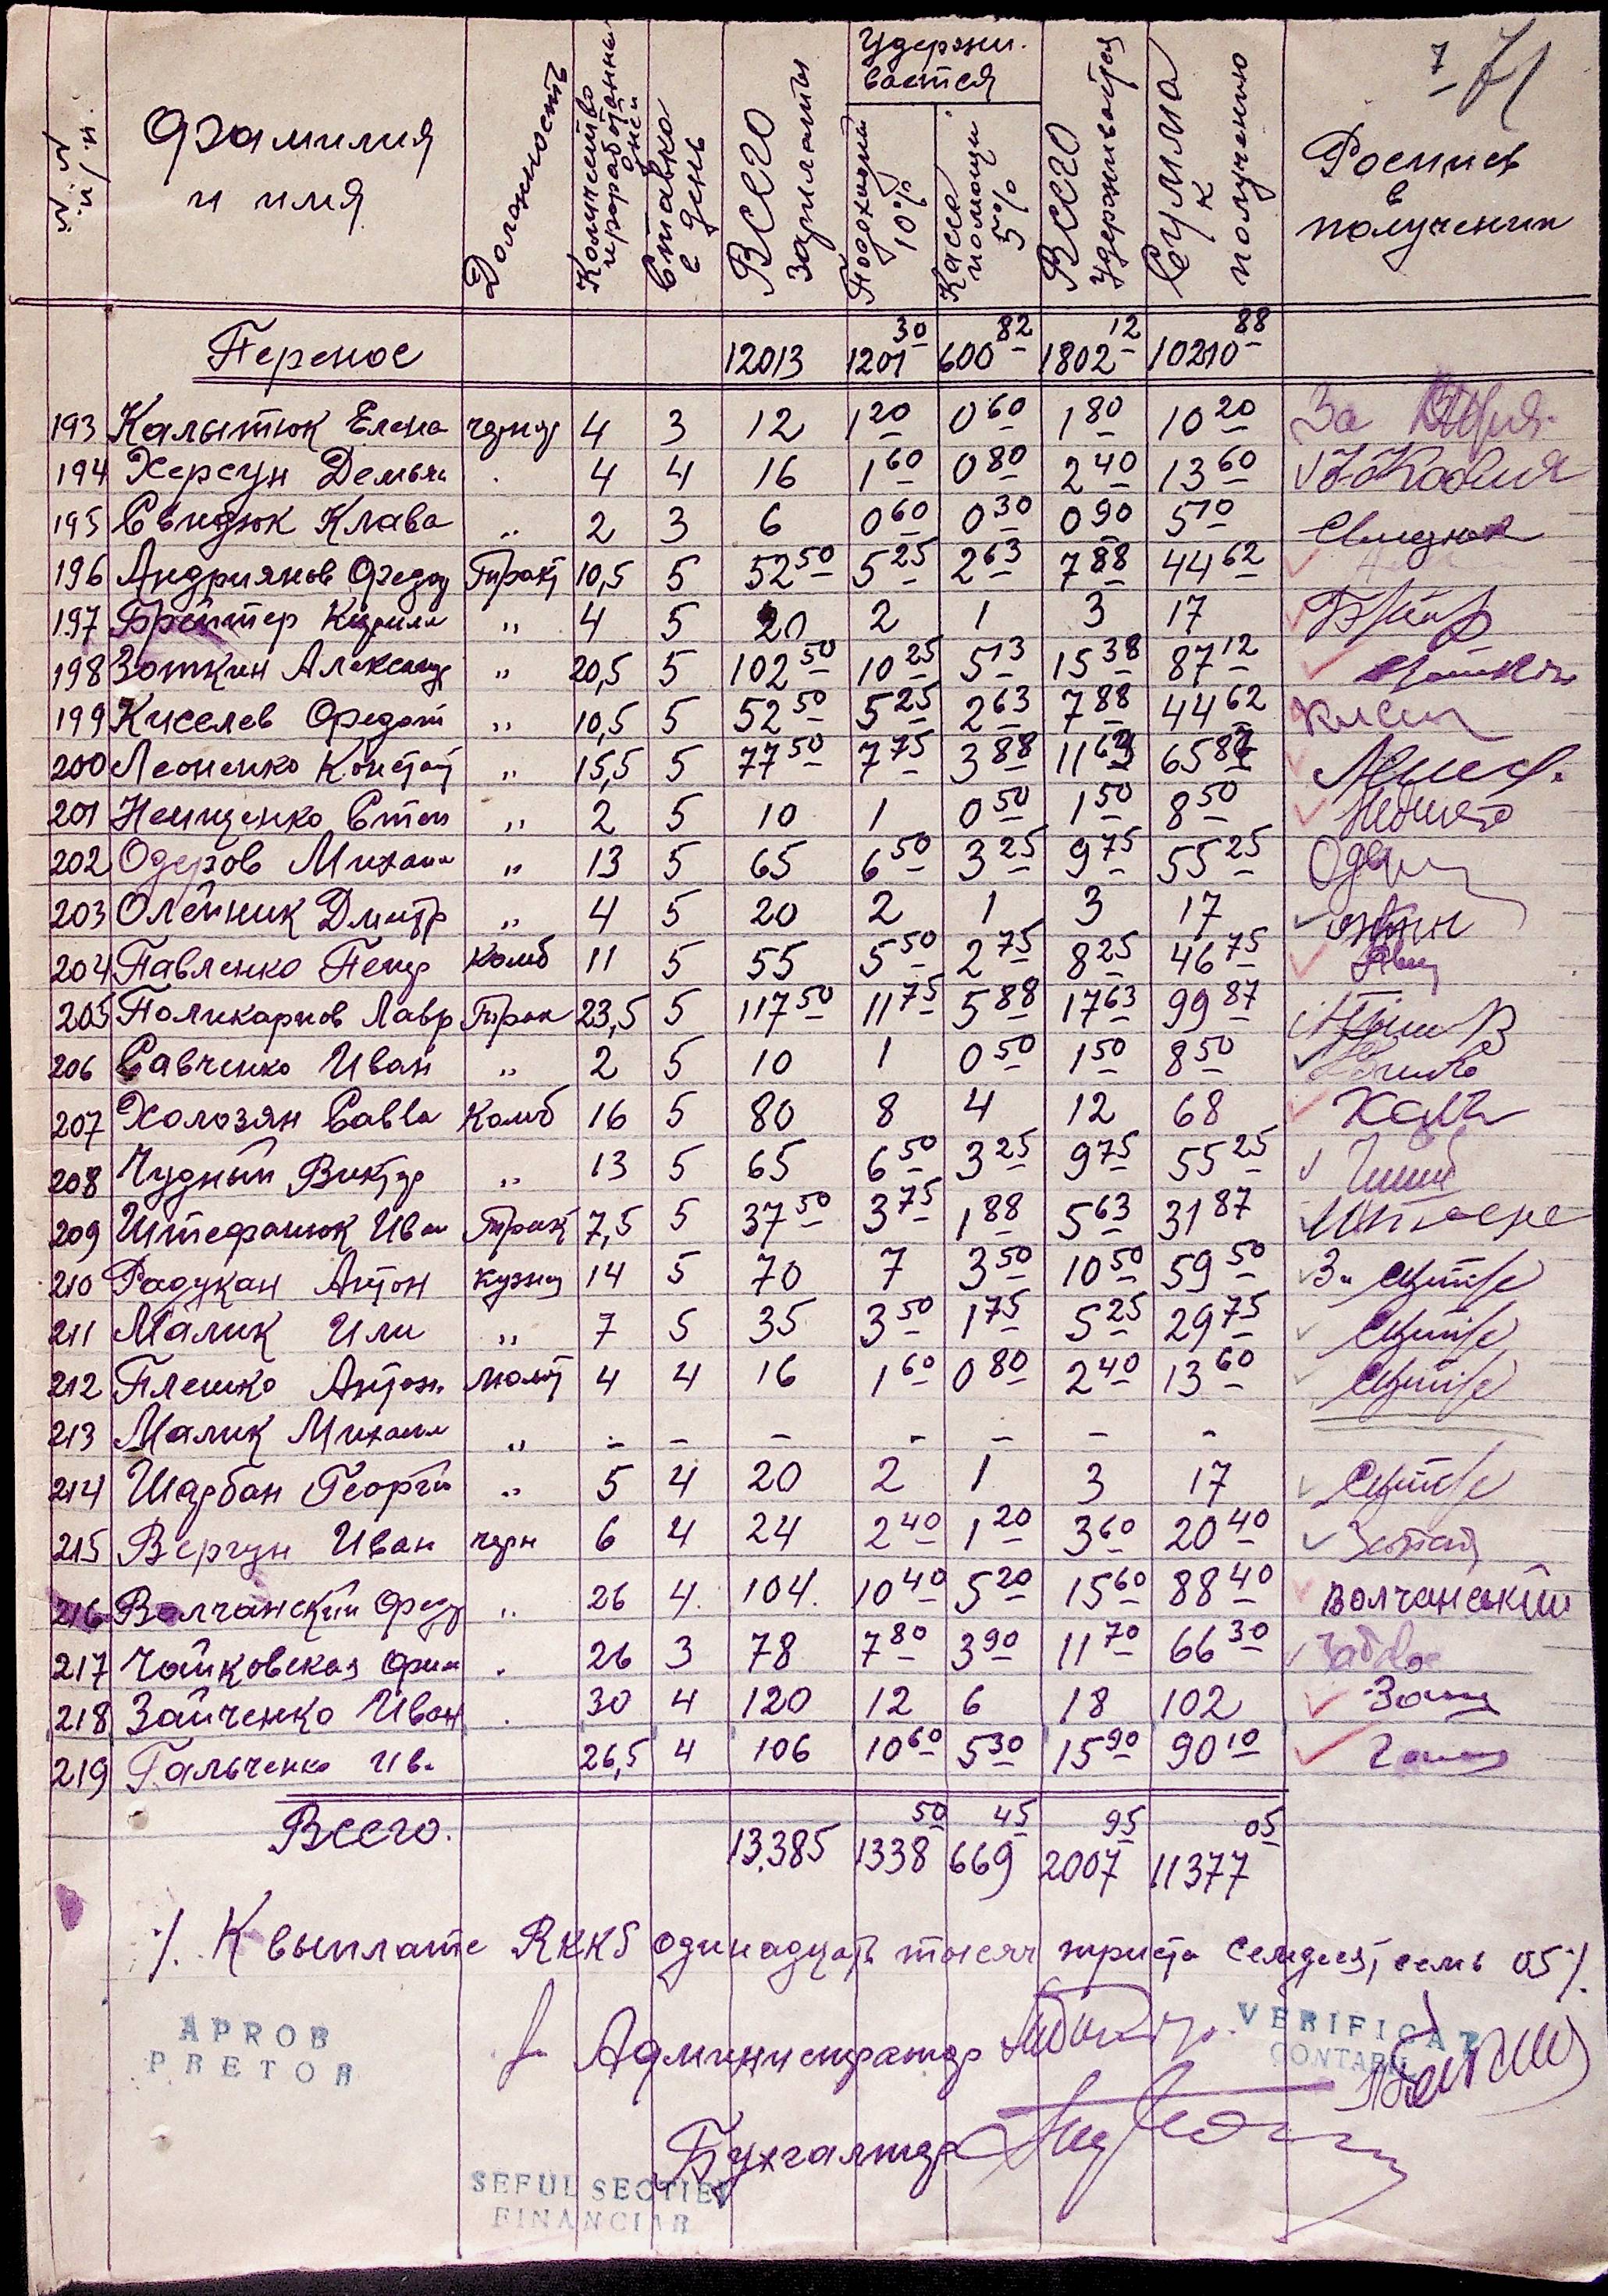 7 71
№№ п/п.
Фамилия и имя
Должность
Количество проработанных дней
Ставка в день
ВСЕГО зарплаты
Удержи-
вается
Подоходный 10%
Касса помощи 5%
ВСЕГО удерживается
Сумма к получению
Роспись в получении
Перенос 12013 1201 30 600 82 1802 12 10210 88
193 Калытюк Елена 4 3 12 1 20 0 60 1 80 10 20 За
194 Херсун Демьян . 4 4 16 1 60 0 80 2 40 13 60
195 Свидюк Клава „ 2 3 6 0 60 0 30 0 90 5 10 Свидюк
196 Андриянов Федор Тракт 10,5 5 52 50 5 25 2 63 7 88 44 62
197 Брейтер Кирилл „ 4 5 20 2 1 3 17
198 Зоткин Александр „ 20,5 5 102 50 10 25 5 13 15 38 87 12
199 Киселев Федот „ 10,5 5 52 50 5 25 2 63 7 88 44 62
200 Леоненко Констат „ 15,5 5 77 50 7 75 3 88 11 63 65 87
201 Нещенко Степ „ 2 5 10 1 0 50 1 50 8 50
202 Одеров Михаил „ 13 5 65 6 50 3 25 9 75 55 25
203 Олейник Дмитр „ 4 5 20 2 1 3 17
204 Павленко Петр Комб 11 5 55 5 50 2 75 8 25 46 75
205 Поликарпов Лавр Трак 23,5 5 117 50 11 75 5 88 17 63 99 87
206 Савченко Иван „ 2 5 10 1 0 50 1 50 8 50
207 Холозян Савва Комб 16 5 80 8 4 12 68
208 Чудный Виктор „ 13 5 65 6 50 3 25 9 75 55 25
209 Штефанюк Иван Трак 7,5 5 37 50 3 75 1 88 5 63 31 87
210 Радукан Антон Кузнец 14 5 70 7 3 50 10 50 59 50
211 Малик Или „ 7 5 35 3 50 1 75 5 25 29 75
212 Плешко Антон. молот 4 4 16 1 60 0 80 2 40 13 60
213 Малик Михаил „ - - - - - - -
214 Шарбан Георги „ 5 4 20 2 1 3 17
215 Вергун Иван черн 6 4 24 2 40 1 20 3 60 20 40
216 Волчанский Федр „ 26 4. 104. 10 40 5 20 15 60 88 40 Волчанський
217 Чайковская Фил . 26 3 78 7 80 3 90 11 70 66 30
218 Зайченко Иван . 30 4 120 12 6 18 102
219 Гальченко Ив. 26,5 4 106 10 60 5 30 15 90 90 10
Всего. 13.385 1338 50 669 45 2007 95 11377 05
К выплате RKKS одинадцать тысяч триста семдесят семь 05
APROB
PRETOR
Администратор
VERIFICAT
CONTABIL
Бухгалтер
SEFUL SECTIEI
FINANCIAR